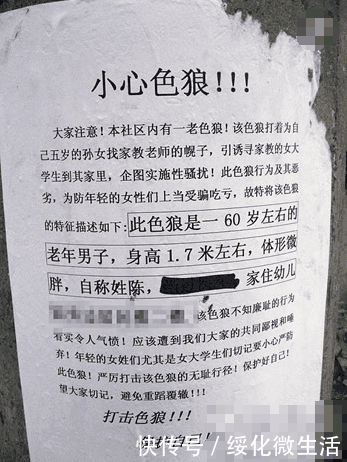 小心色狼!!!
大家注意！本社区内有一老色狼！该色狼打着为自
己五岁的孙女找家教老师的幌子，引诱寻家教的女大
学生到其家里，企图实施性骚扰！此色狼行为及其恶
劣，为防年轻的女性们上当受骗吃亏，故特将该色狼
的特征描述如下:此色狼是一 60 岁左右的
老年男子，身高 1.7 米左右，体形微
胖，自称姓陈， 家住幼儿
该色狼不知廉耻的行为
着实令人气愤！应该遭到我们大家的共同鄙视和唾
弃！年轻的女姓们尤其是女大学生们切记要小心严防
此色狼！严厉打击该色狼的无耻行径！保护好自己！
望大家切记，避免重蹈覆辙!!!
打击色狼!!!
快传号 / 绥化微生活